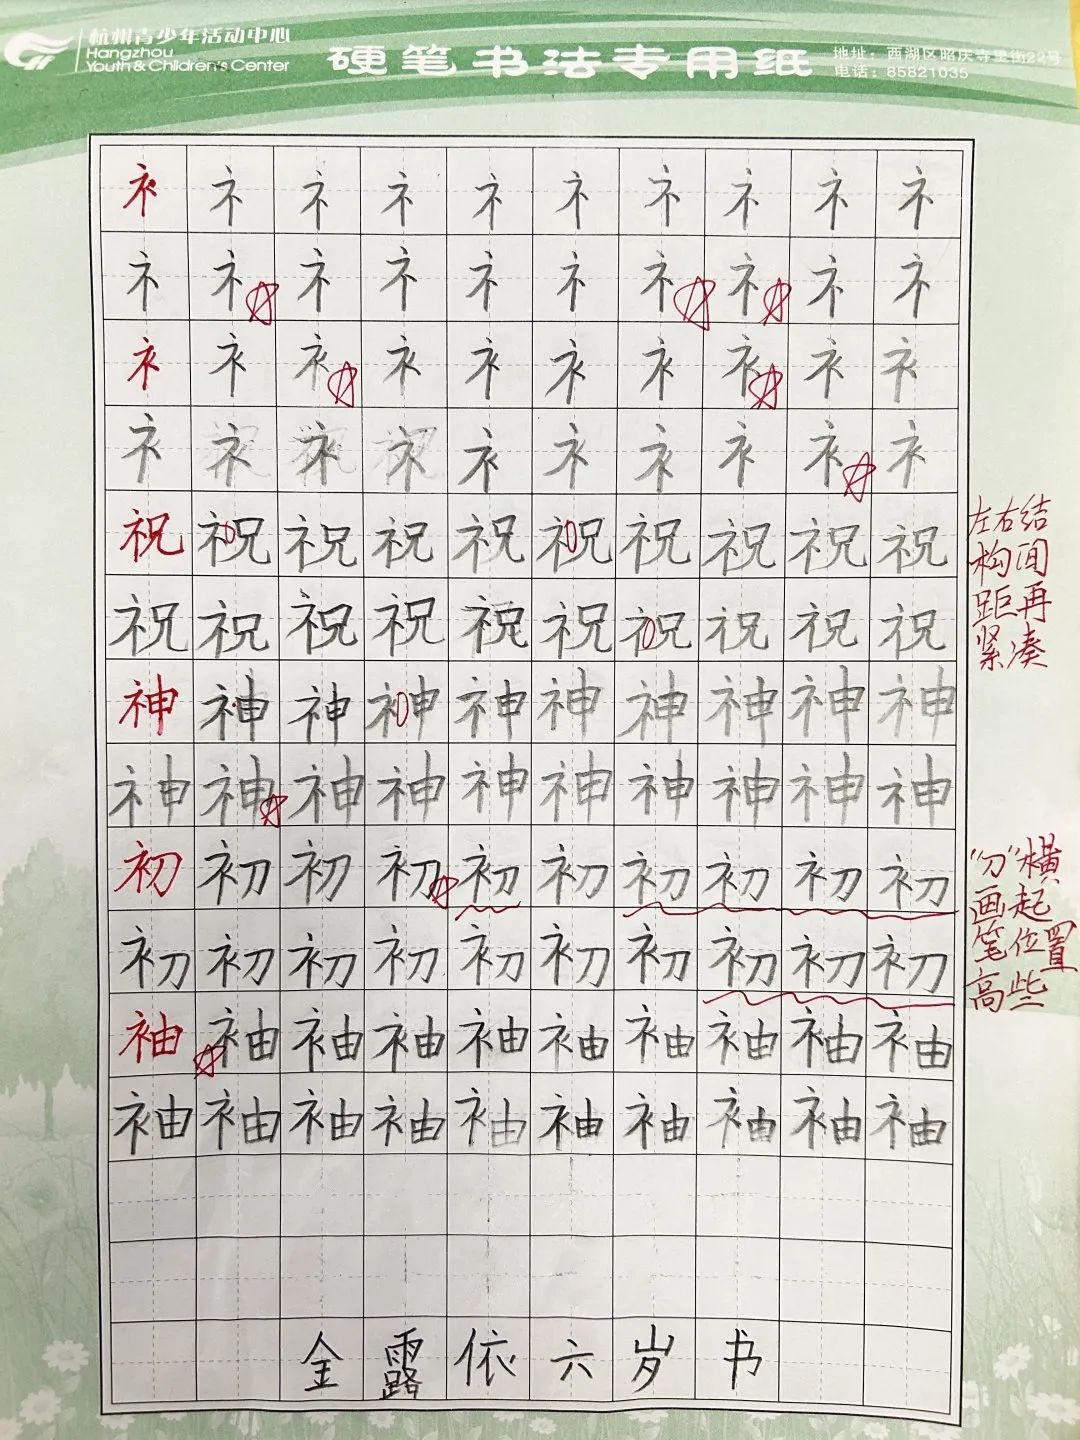 杭州青少年活动中心
Hangzhou
Youth & Children's Center
硬笔书法专用纸
地址：西湖区昭庆寺里街22号
电话：85821035
礻礻礻礻礻礻礻礻礻礻
礻礻礻礻礻礻礻礻礻礻
衤衤衤衤衤衤衤衤衤衤
礻衤衤衤衤衤衤衤衤衤
祝祝祝祝祝祝祝祝祝祝
祝祝祝祝祝祝祝祝祝祝
左右结
构间
距再
紧凑
神神神神神神神神神神
神神神神神神神神神神
初初初初初初初初初初
初初初初初初初初初初
"刀"横
画起
笔位置
高些
袖袖袖袖袖袖袖袖袖袖
袖袖袖袖袖袖袖袖袖袖
金露依六岁书